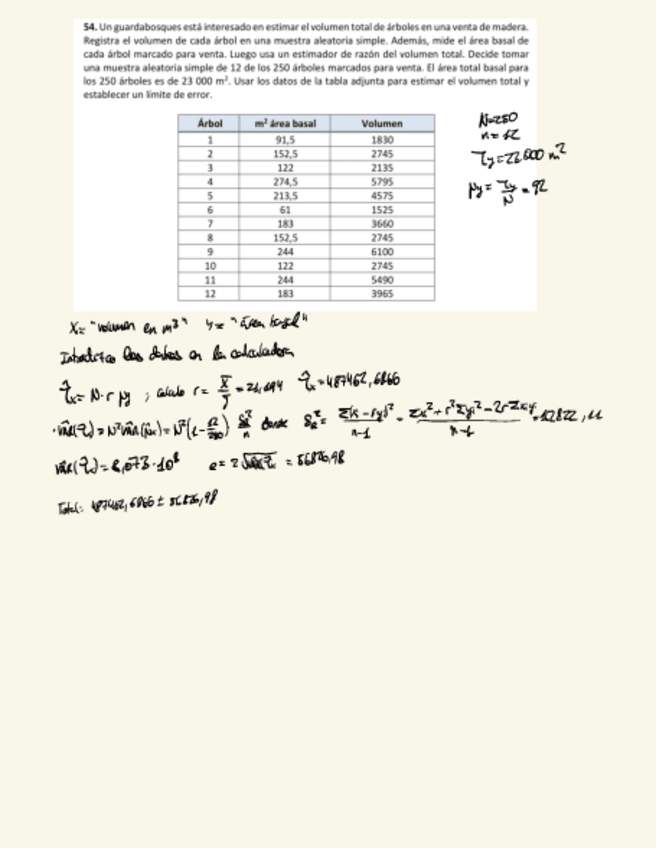 54. Un guardabosques está interesado en estimar el volumen total de árboles en una venta de madera.
Registra el volumen de cada árbol en una muestra aleatoria simple. Además, mide el área basal de
cada árbol marcado para venta. Luego usa un estimador de razón del volumen total. Decide tomar
una muestra aleatoria simple de 12 de los 250 árboles marcados para venta. El área total basal para
los 250 árboles es de 23 000 m². Usar los datos de la tabla adjunta para estimar el volumen total y
establecer un límite de error.
Árbol m² área basal Volumen
1 91,5 1830
2 152,5 2745
3 122 2135
4 274,5 5795
5 213,5 4575
6 61 1525
7 183 3660
8 152,5 2745
9 244 6100
10 122 2745
11 244 5490
12 183 3965
N=250
n=12
τy = 23000 m²
μy = τy/N = 92
X= "volumen en m³" Y= "área basal"
los datos en la calculadora
τ̂x = N·r μy ; calculo r = x̄/ȳ = τ̂x = 487462,6866
donde
e = 2
Total: